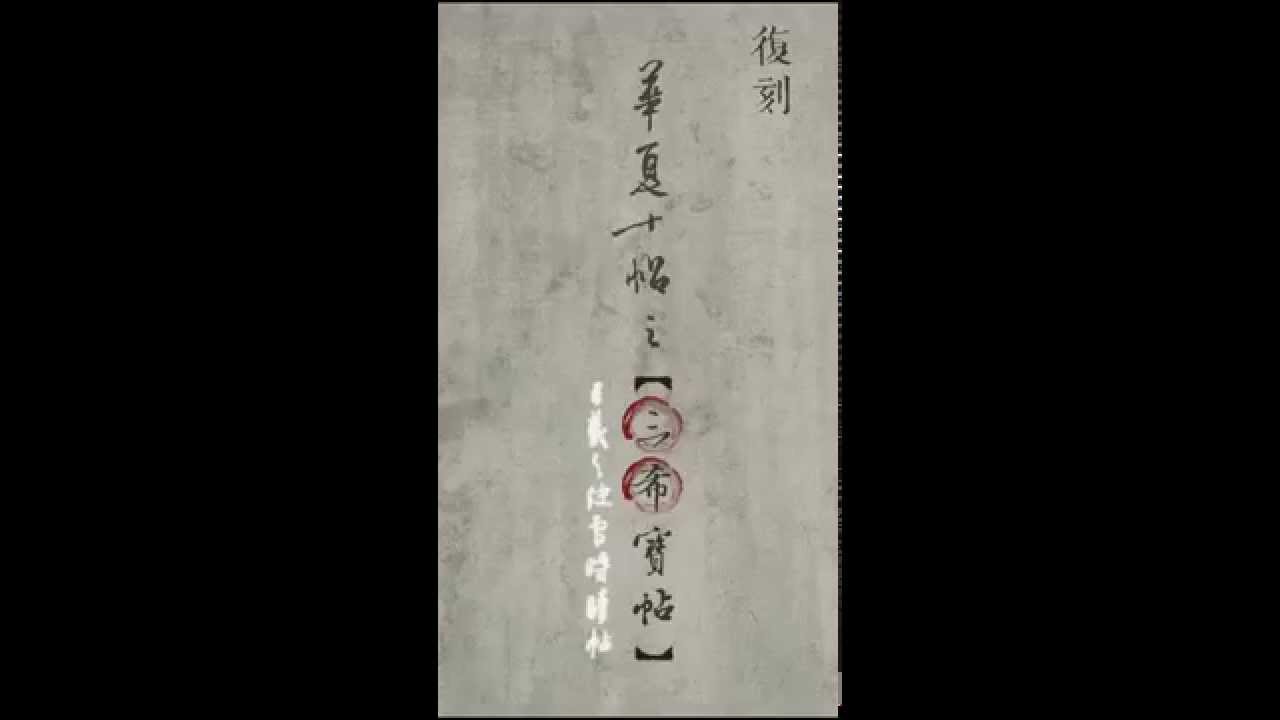 復刻
華夏十帖之【三希寶帖】
王羲之快雪時晴帖